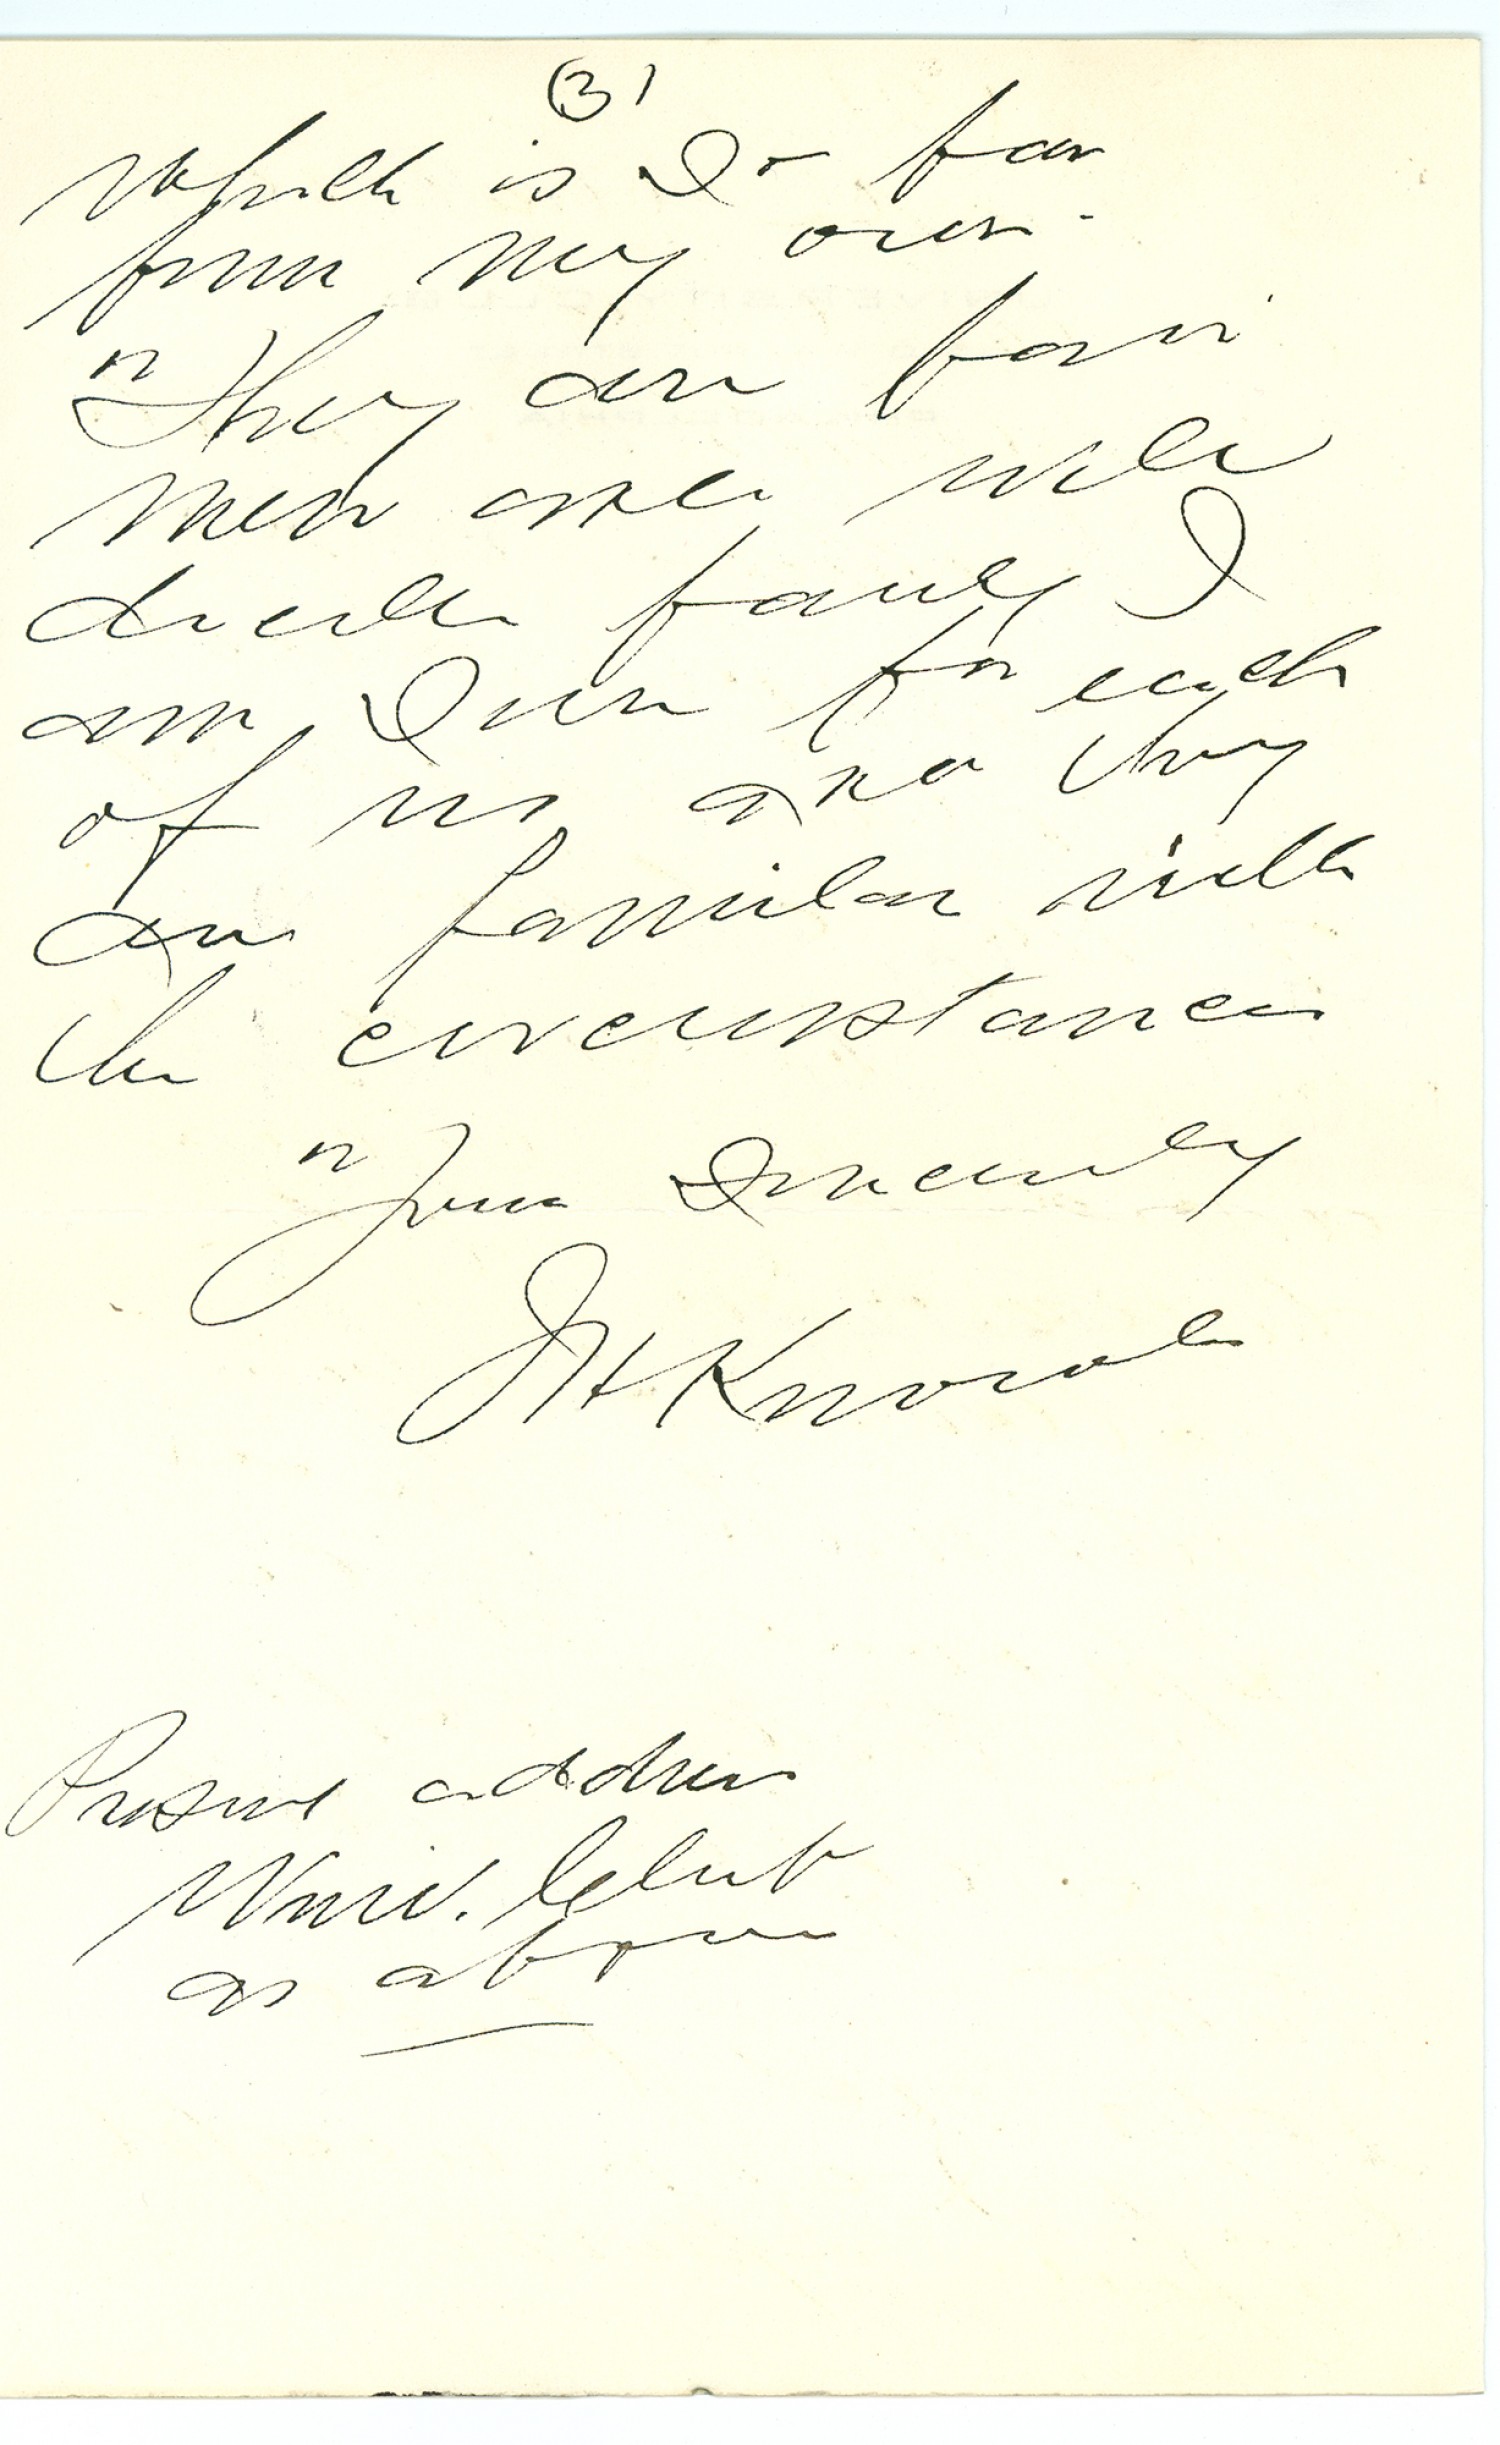 (3)
which is so far
from my own.
"They are fair
men and will
decide fairly I
am sure for each
of us and they
are familiar with
the circumstances
"Yours Sincerely
H Knowles
Present address
Univ. Club
as above